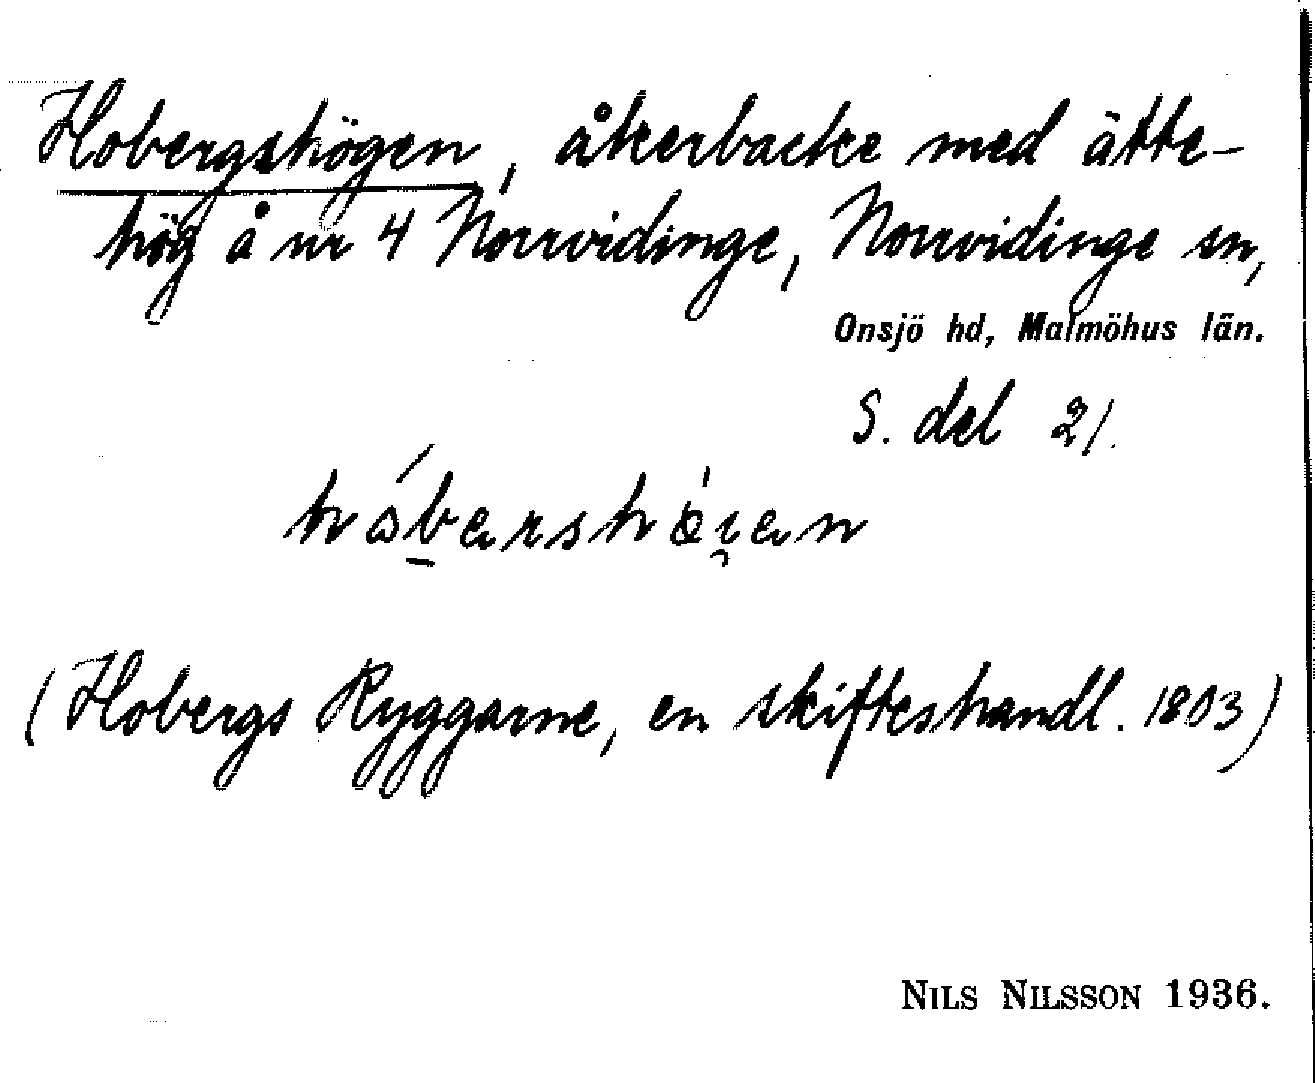 Hobergshögen, åkerbacke med ätte-
hög å nr 4 Norrvidinge, Norrvidinge sn,
Onsjö hd, Malmöhus län.
S. del 21.
(Hobergs Ryggarne, en skifteshandl. 1803)
NILS NILSSON 1936.